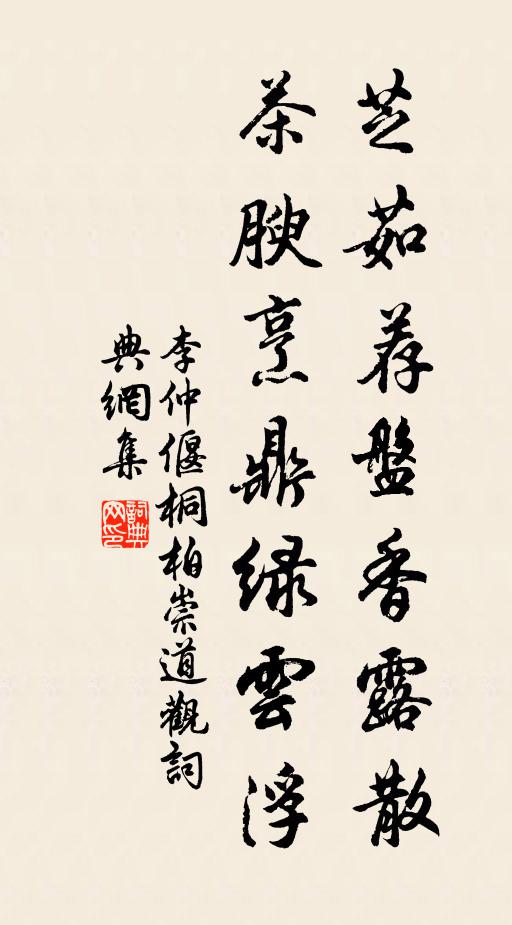 芝茹荐盤香露散
茶腴烹鼎绿雲浮
李仲偃桐柏崇道觀詞
典網集
詞典网印